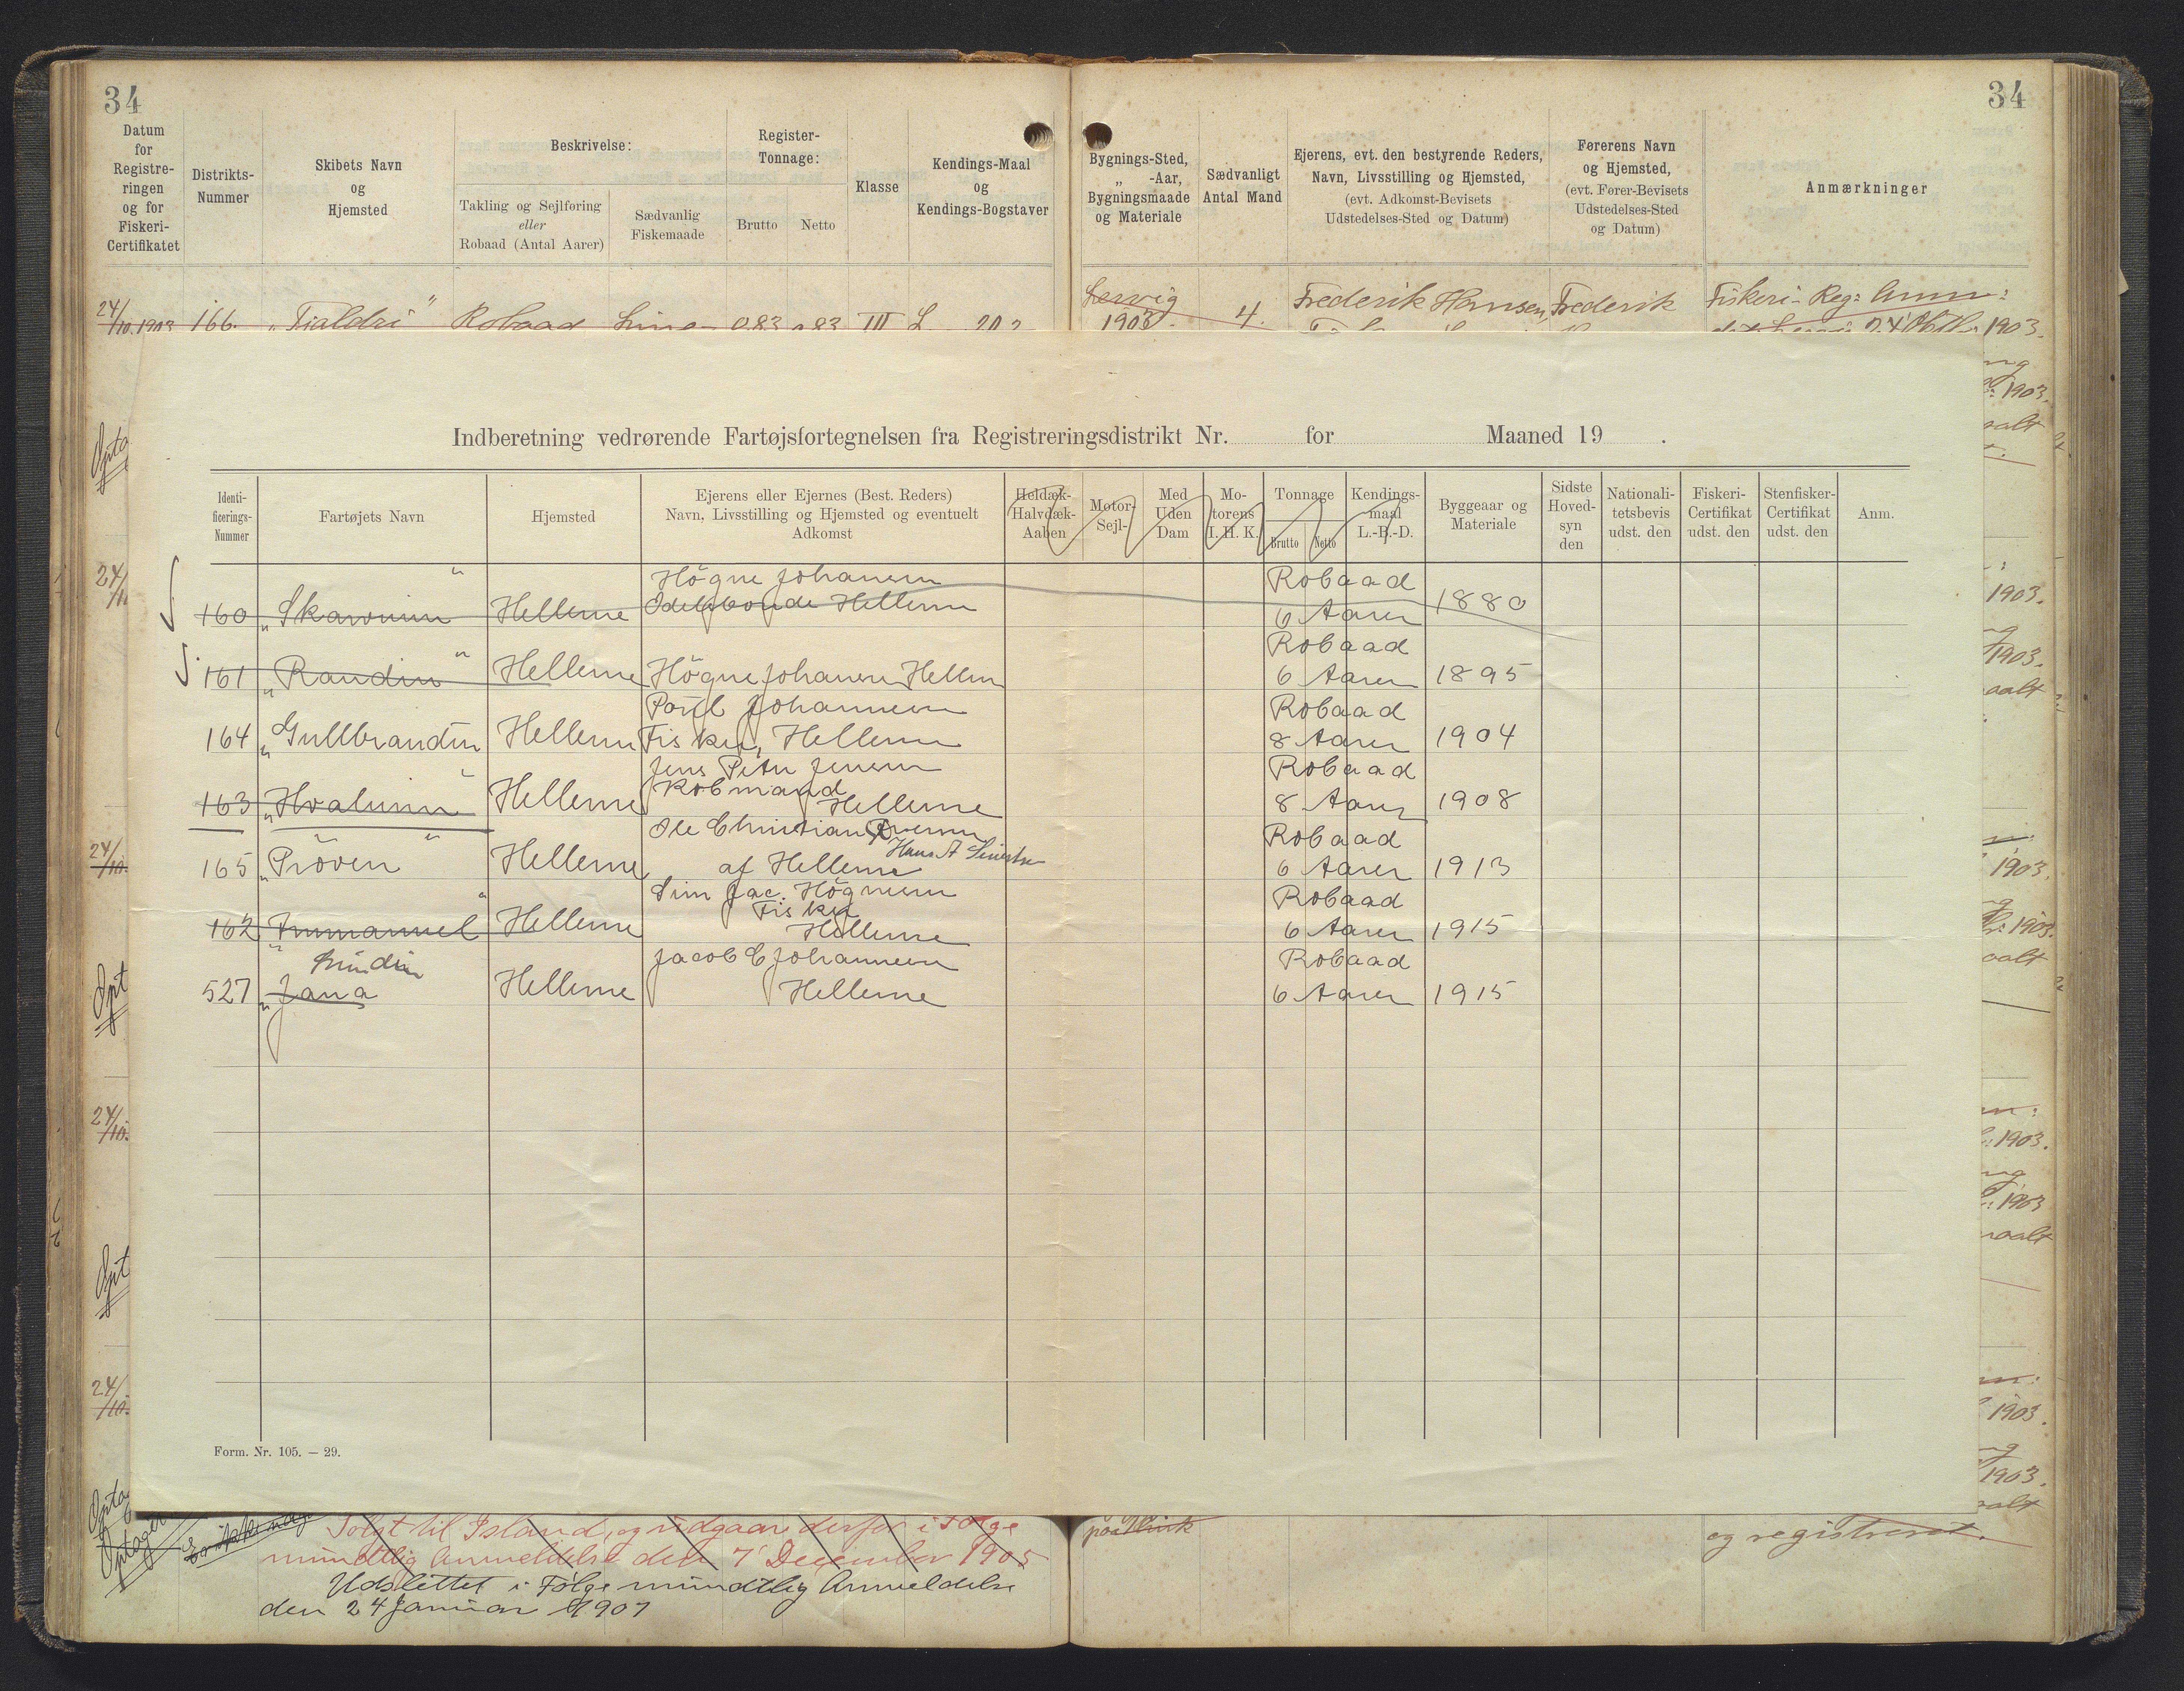 34
34
Datum for Registreringen og for Fiskeri-Certifikatet
Distrikts-Nummer
Skibets Navn og Hjemsted
Beskrivelse:
Takling og Sejlføring eller Robaad (Antal Aarer)
Sædvanlig Fiskemaade
Register-Tonnage:
Brutto
Netto
Klasse
Kendings-Maal og Kendings-Bogstaver
Bygnings-Sted, „ -Aar, Bygningsmaade og Materiale
Sædvanligt Antal Mand
Ejerens, evt. den bestyrende Reders, Navn, Livsstilling og Hjemsted, (evt. Adkomst-Bevisets Udstedelses-Sted og Datum)
Førerens Navn og Hjemsted, (evt. Fører-Bevisets Udstedelses-Sted og Datum)
Anmærkninger
24/10.1903 166. „Tialdri" Robaad Line 0.83 0.83 III L 20,2
Lervig 1903. 4. Frederik Hansen, Frederik Fiskeri-Reg: Anm:
24 Oktbr 1903.
Indberetning vedrørende Fartøjsfortegnelsen fra Registreringsdistrikt Nr. for Maaned 19 .
Identificerings-Nummer
Fartøjets Navn
Hjemsted
Ejerens eller Ejernes (Best. Reders) Navn, Livsstilling og Hjemsted og eventuelt Adkomst
Heldæk- Halvdæk- Aaben
Motor- Sejl-
Med Uden Dam
Motorens I. H. K.
Tonnage
Brutto
Netto
Kendingsmaal L.-B.-D.
Byggeaar og Materiale
Sidste Hovedsyn den
Nationalitetsbevis udst. den
Fiskeri-Certifikat udst. den
Stenfisker-Certifikat udst. den
Anm.
160 „Skarvurin" Hellerne Högne Johanesen Odelsbonde Hellerne Robaad 6 Aarer 1880
161 „Raudin" Hellerne Högne Johanesen Hellerne Robaad 6 Aarer 1895
164 „Gullbrandin Hellerne Poúl Johannesen Fisker, Hellerne Robaad 8 Aarer 1904
163 „Hvalurin" Hellerne Jens Peter Jensen Købmand Hellerne Robaad 8 Aarer 1908
165 „Pröven" Hellerne Ole Christian af Hellerne Hans A Robaad 6 Aarer 1913
162 „Immanuel" Hellerne Sim Jac. Högnesen Fisker Hellerne Robaad 6 Aarer 1915
527 „Jana Hellerne Jacob E Johannesen Hellerne Robaad 6 Aarer 1915
Form. Nr. 105. — 29.
Solgt til Island, og udgaar derfor i Følge
mundtlig Anmeldelse den 7' December 1905
Udslettet i Følge mundtlig Anmeldelse
den 24 Januar 1907
paa Klink
og registreret.